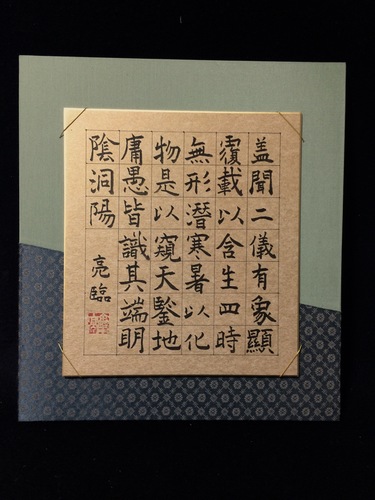 盖聞二儀有象顯
覆載以含生四時
無形潛寒暑以化
物是以窺天鑒地
庸愚皆識其端明
陰洞陽
亮臨